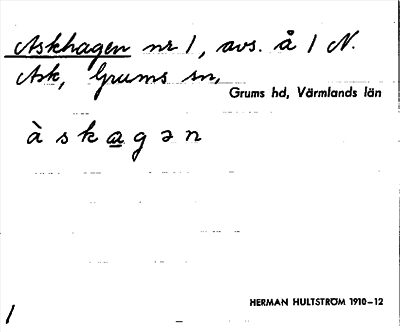 Askhagen nr 1, avs. å 1 N.
Ask, Grums sn,
Grums hd, Värmlands län
à s k a g ə n
HERMAN HULTSTRÖM 1910–12
1